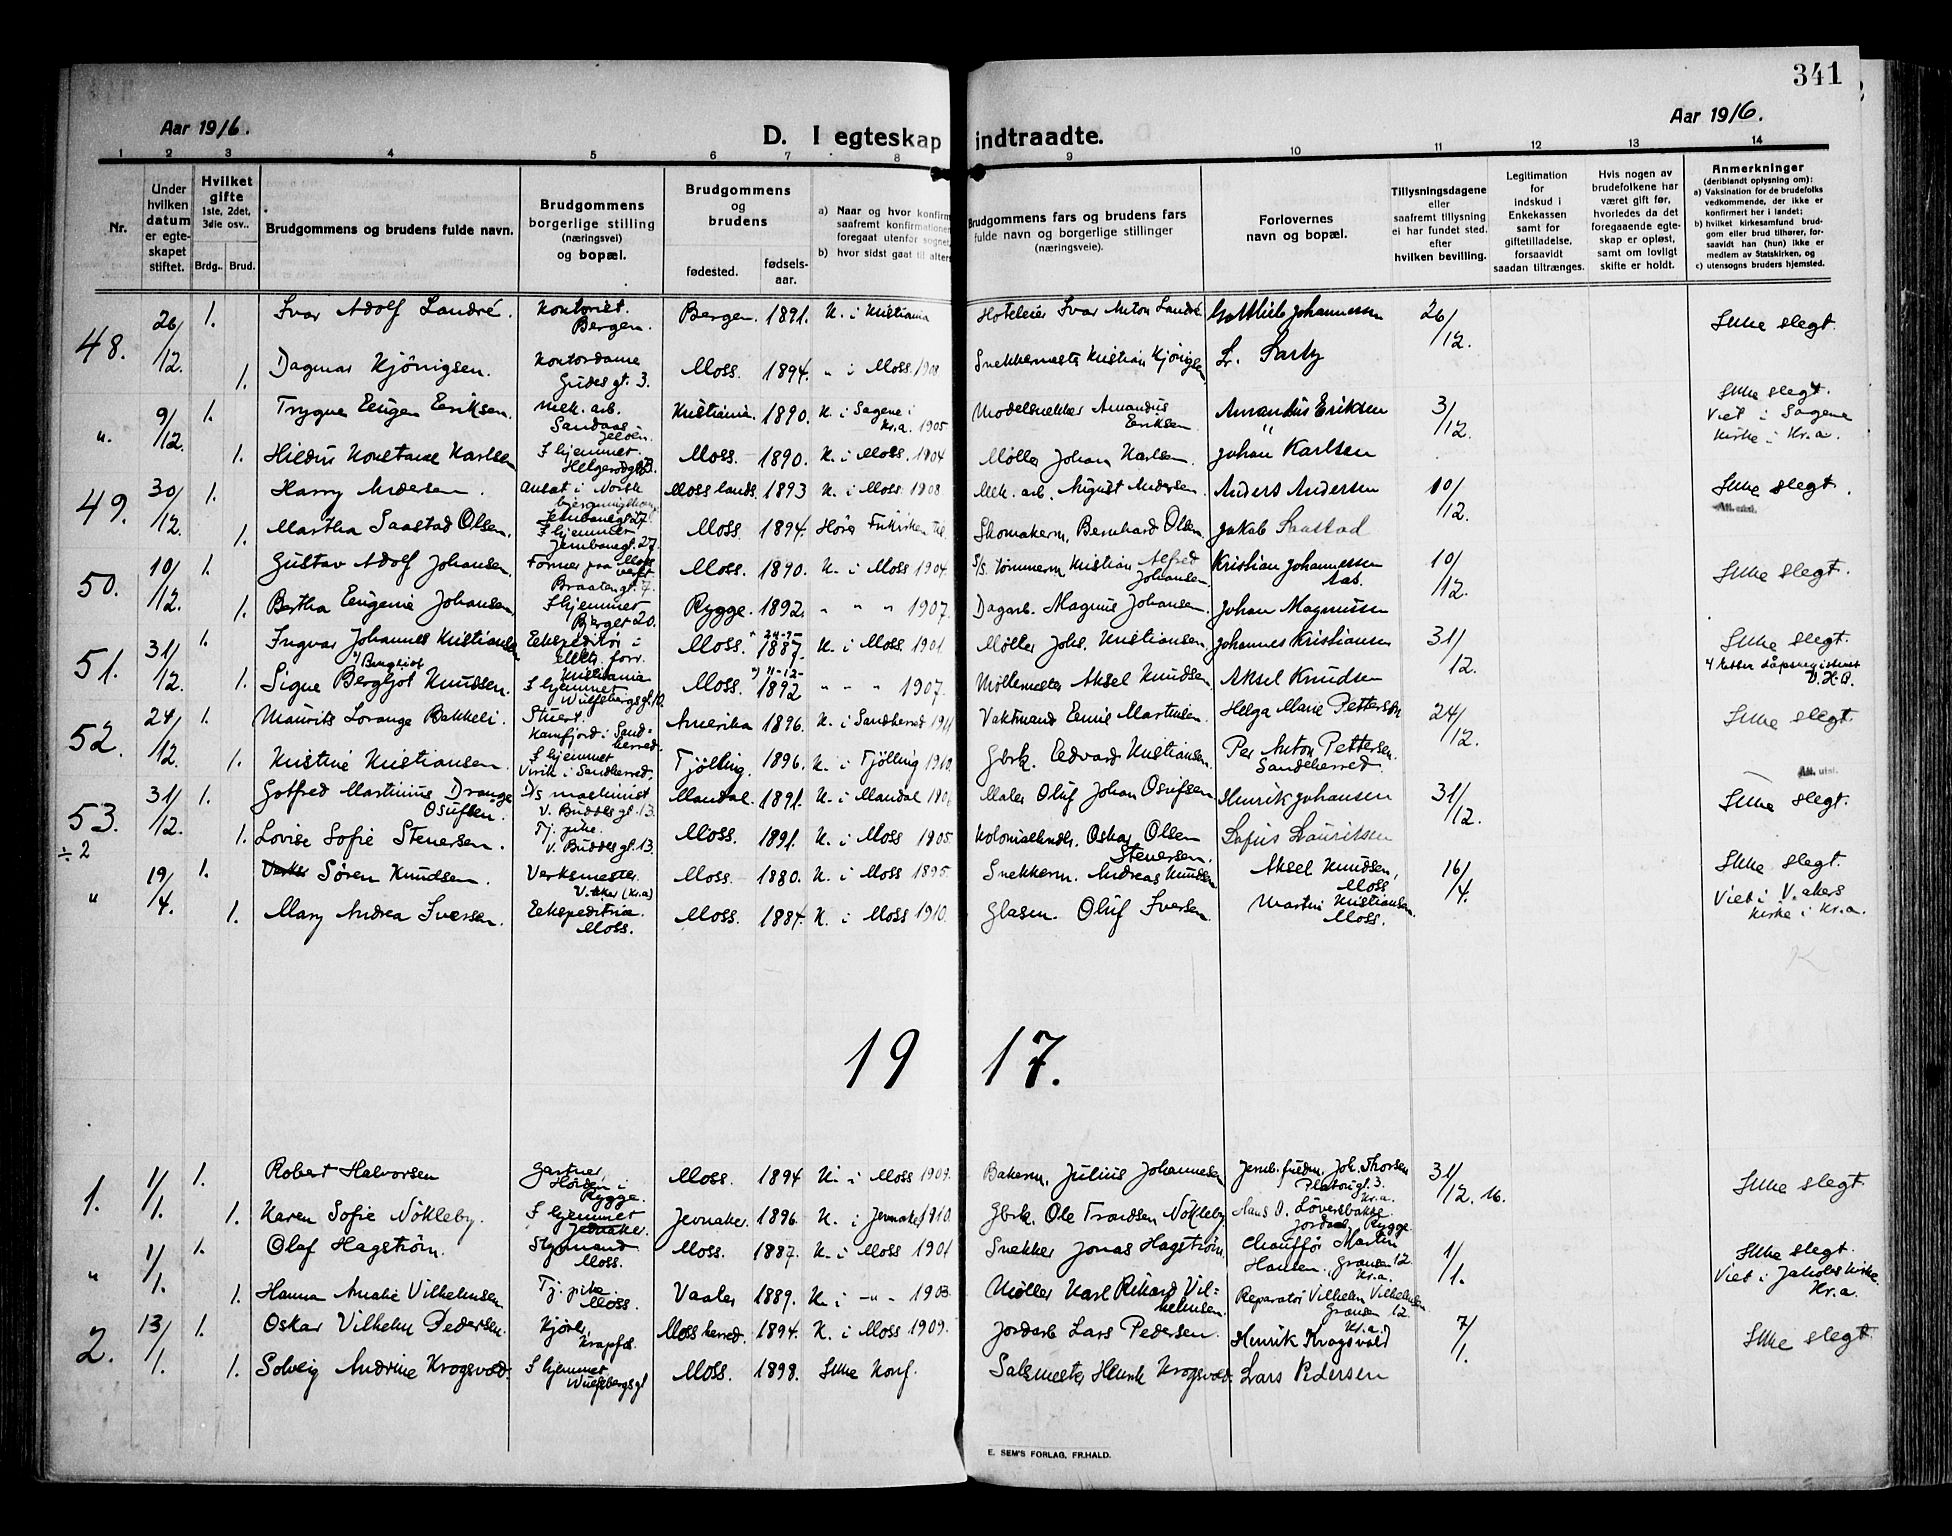 341
Aar 1916.
D. I egteskap indtraadte.
Aar 1916.
1 2 3 4 5 6 7 8 9 10 11 12 13 14
Nr.
Under hvilken datum er egteskapet stiftet.
Hvilket gifte 1ste, 2det, 3die osv..
Brdg.. Brud.
Brudgommens og brudens fulde navn.
Brudgommens borgerlige stilling (næringsvei) og bopæl.
Brudgommens og brudens
fødested.
fødsels-aar.
a) Naar og hvor konfirm saafremt konfirmationen foregaat utenfor sognet,
b) hvor sidst gaat til alters
Brudgommens fars og brudens fars fulde navn og borgerlige stillinger (næringsveie).
Forlovernes navn og bopæl.
Tillysningsdagene eller saafremt tillysning ei har fundet sted, efter hvilken bevilling.
Legitimation for indskud i Enkekassen samt for giftetilladelse, forsaavidt saadan tiltrænges.
Hvis nogen av brudefolkene har været gift før, hvorledes da det foregaaende egteskap er opløst, samt om lovligt skifte er holdt.
Anmerkninger (deriblandt oplysning om):
a) Vaksination for de brudefolks vedkommende, der ikke er konfirmert her i landet;
b) hvilket kirkesamfund brudgom eller brud tilhører, forsaavidt han (hun) ikke er medlem av Statskirken, og
c) utensogns bruders hjemsted.
48. 26/12. 1. Ivar Adolf Landré. Kontorist. Bergen. Bergen. 1891. K. i Kristiania Hoteleier Ivar Anton Landré Gottlieb Johannessen 26/12. Ikke slegt.
1. Dagmar Kjönigsen. Kontordame Gudes gt. 3. Moss. 1894. " i Moss 1908 Snekkermester Kristian Kjönigsen L. Sarby
" 9/12. 1. Trygve Eugen Eriksen. Mek. arb. Sandaas Jeløen. Kristiania. 1890. K. i Sagene i Kr.a. 1905 Modelsnekker Amandus Eriksen Amandus Eriksen 3/12. Ikke slegt. Viet i Sagene Kirke i Kr.a.
1. Hildur Konstanse Karlsen I hjemmet. Helgerødgt. Moss. 1890. K. i Moss. 1904 Møller Johan Karlsen. Johan Karlsen
49. 30/12. 1. Harry Andersen. Ansat i Norsk Jernbanegt. 27. Moss lands. 1893 K. i Moss 1908. Mek. arb. August Andersen. Anders Andersen 10/12. Ikke slegt. Att. utst.
1. Martha Saastad Olsen. I hjemmet Jernbanegt. 27. Moss. 1894. Hører Frikirken til Skomakerm. Bernhard Olsen Jakob Saastad
50. 10/12. 1. Gustav Adolf Johansen. Former paa Moss verft Braatengt. 4. Moss. 1890. K. i Moss 1904. S/s. tømmerm Kristian Alfred Johansen. Kristian Johannessen Aas. 10/12. Ikke slegt.
1. Bertha Eugenie Johansen I hjemmet Bjerget 20. Rygge. 1892. " " " 1907. Dagarb. Magnus Johansen. Johan Magnussen
51. 31/12. 1. Ingvar Johannes Kristiansen Ekspeditør i Elektr. forr. Kristiania Moss. 24-9- 1887. K. i Moss 1901 Møller Johs. Kristiansen Johannes Kristiansen 31/12. Ikke slegt.
1. Signe Bergljot Knudsen. Bergliot I hjemmet Wulfsbergsgt. 10. Moss. 11-12- 1892 " " " 1907. Møllemester Aksel Knudsen Aksel Knudsen
52. 24/12. 1. Maurits Lorange Bakkeli. Stuert. Kamfjord i Sandherred. Amerika 1896. K. i Sandherred 1911 Vaktmand Emil Martinsen. Helga Marie Petterson 24/12. Ikke slegt.
1. Kristine Kristiansen. I hjemmet Virik i Sandherred. Tjølling. 1896. K. i Tjølling 1910. Gbrk. Edvard Kristiansen. Per Anton Pettersen. Sandeherred. Att. utst.
53. ÷2 31/12. 1. Gotfred Martinius Drange Osufsen. D/s maskinist V. Buddes gt. 13. Mandal. 1891. K. i Mandal 1906 Maler Oluf Johan Osufsen Henrik Johansen 31/12. Ikke slegt.
1. Lovise Sofie Stenersen. Tj. pike. V. Buddes gt. 13. Moss. 1891. K. i Moss 1905. Kolonialhndlr. Oskar Olsen Stenersen. Sofus Lauritsen
" 19/4. 1. Søren Knudsen. Verksmester. V. Aker (Kr.a) Moss. 1880. K. i Moss 1895. Snekkerm. Andreas Knudsen Aksel Knudsen, Moss 16/4. Ikke slegt. Viet i V. akers Kirke i Kr.a.
1. Mary Andrea Iversen. Ekspeditrise. Moss. Moss. 1884. K. i Moss 1910. Glasm. Oluf Iversen. Martin Kristiansen. Moss.
1917.
1. 1/1. 1. Robert Halvorsen Gartner, Rygge. Moss. 1894 K. i Moss 1909. Bakerm. Julius Johannesen Jernb. fuldm. Joh. Thorsen Platousgt. 3. Kr.a. 31/12. 16. Ikke slegt
1. Karen Sofie Nökleby. I hjemmet Jevnaker. Jevnaker. 1896. K. i Jevnaker 1910. Gbrk. Ole Trondsen Nökleby Hans O. Løversbakke Rygge.
" 1/1. 1. Olaf Hagstrøm. Styrmand Moss. Moss. 1887. K. i Moss 1901 Snekker Jonas Hagstrøm. Chauffør Martin Hansen. Grænsen 12. Kr.a. 1/1. Ikke slegt. Viet i Jakobs Kirke. Kr.a.
1. Hanna Amalie Vilhelmsen Tj. pike. Moss. Vaaler 1889. K. i -"- 1903. Møller Karl Rikard Vilhelmsen. Reparatør Vilhelm Vilhelmsen Grænsen 12. Kr.a.
2. 13/1. 1. Oskar Vilhelm Pedersen. Kjører, Krapfos. Moss herred. 1894. K. i Moss 1909. Jordarb Lars Pedersen. Henrik Krogsvold 7/1. Ikke slegt
1. Solveig Andrine Krogsvold. I hjemmet Wulfsbergsgt Moss. 1898. Ikke konf. Salsmester Henrik Krogsvold. Lars Pedersen
E. SEM'S FORLAG, FR.HALD.